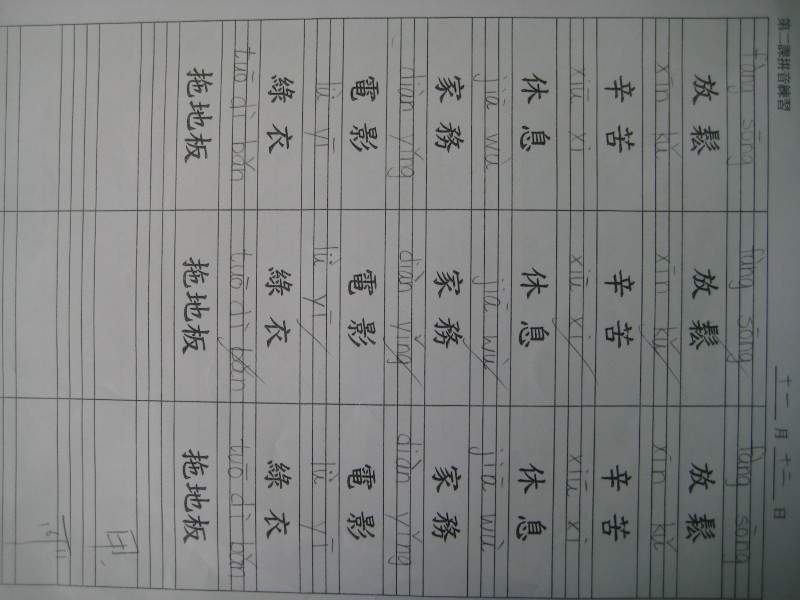 第二課拼音練習 十一月十二日
fàng sōng fàng sōng fàng sōng
放鬆 放鬆 放鬆
xīn kǔ xīn kǔ xīn kǔ
辛苦 辛苦 辛苦
xiū xi xiū xi xiū xi
休息 休息 休息
jiā wù jiā wù jiā wù
家務 家務 家務
diàn yǐng diàn yǐng diàn yǐng
電影 電影 電影
lǜ yī lǜ yī lǜ yī
綠衣 綠衣 綠衣
tuō dì bǎn tuō dì bǎn tuō dì bǎn
拖地板 拖地板 拖地板